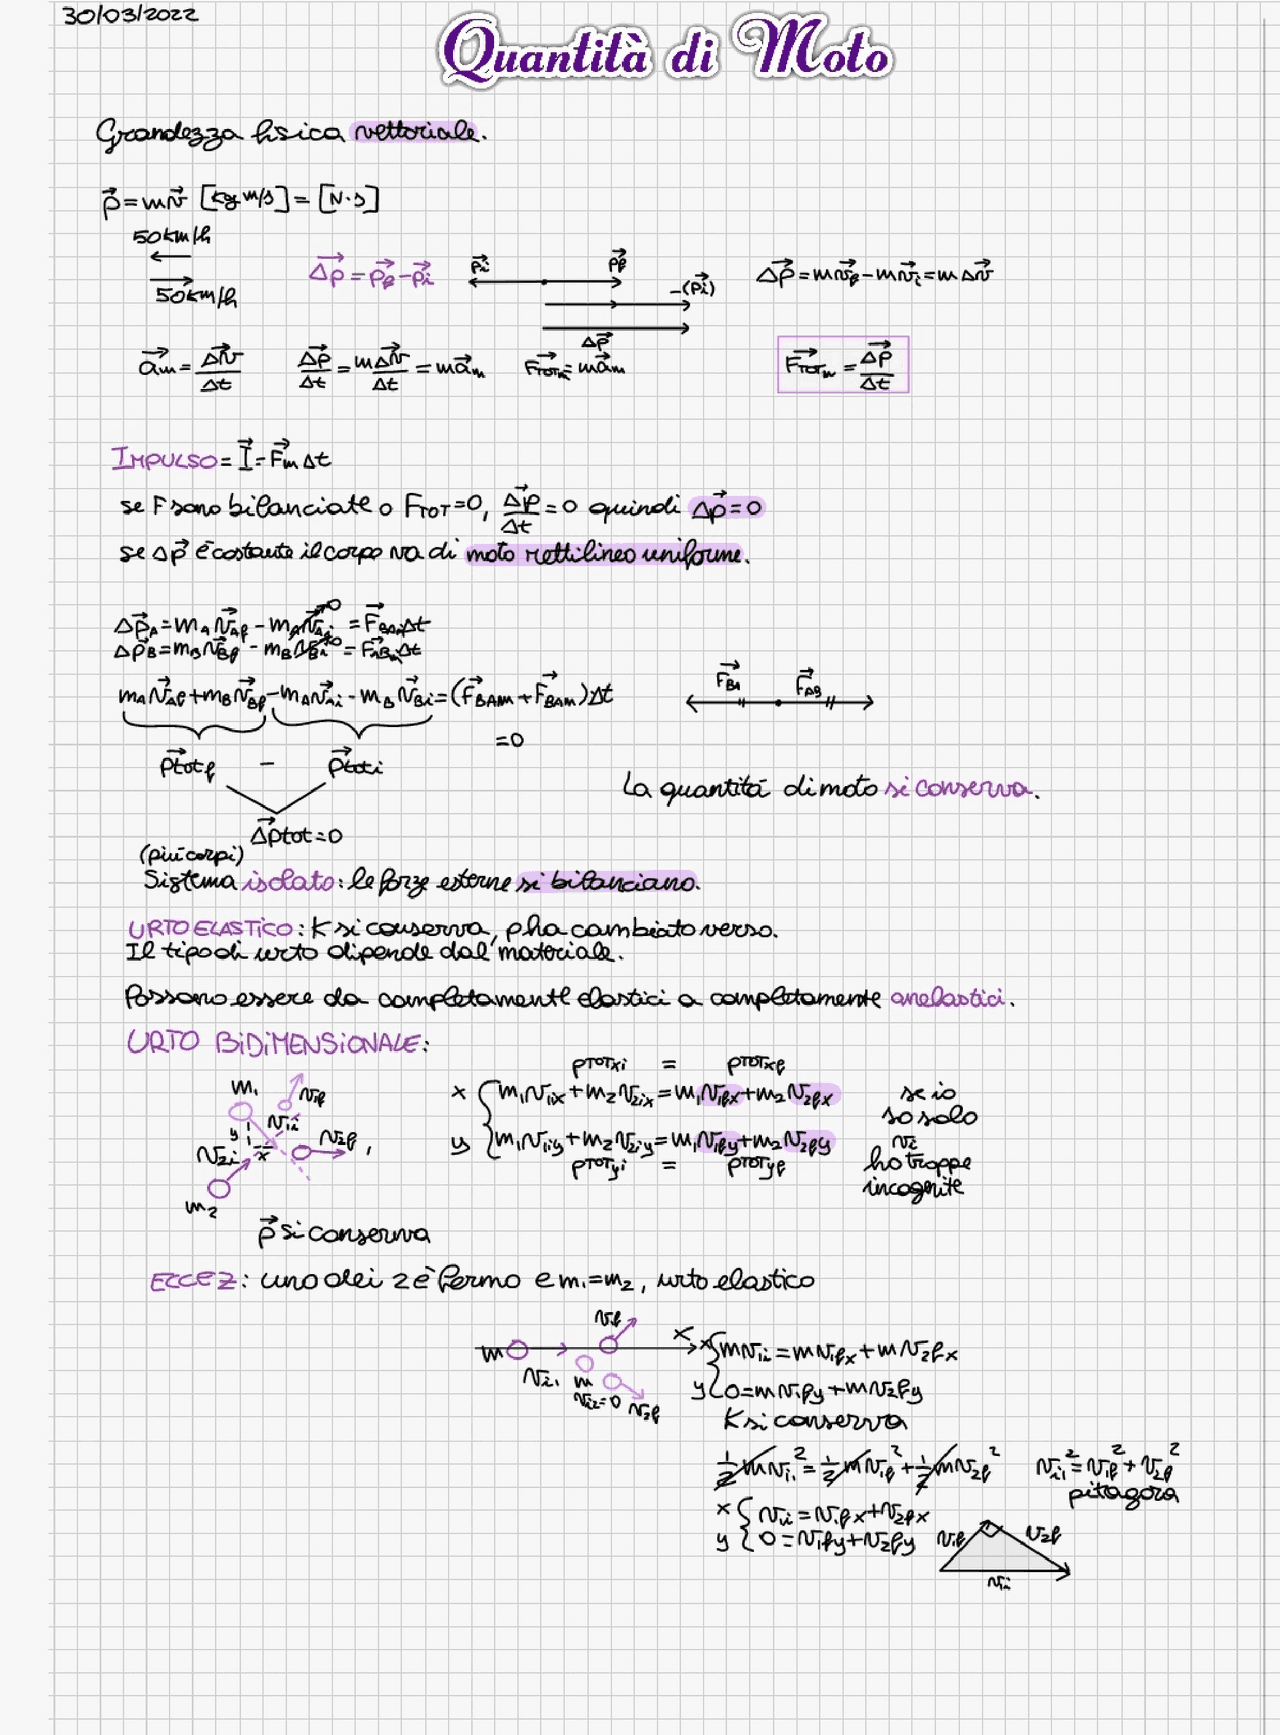 30/03/2022
Quantità di Moto
Grandezza fisica vettoriale.
p⃗ = mv⃗ [kg m/s] = [N·s]
50 km/h
50 km/h
Δp⃗ = p⃗f - p⃗i
p⃗i p⃗f
-(p⃗i)
Δp⃗
Δp⃗ = mv⃗f - mv⃗i = m Δv⃗
a⃗m = Δv⃗/Δt
Δp⃗/Δt = mΔv⃗/Δt = ma⃗m
F⃗TOTm = ma⃗m
F⃗TOTm = Δp⃗/Δt
IMPULSO = I⃗ = F⃗m Δt
se F sono bilanciate o FTOT = 0, Δp⃗/Δt = 0 quindi Δp⃗ = 0
se Δp⃗ è costante il corpo va di moto rettilineo uniforme.
Δp⃗A = mA v⃗Af - mA v⃗Ai →0 = F⃗BAm Δt
Δp⃗B = mB v⃗Bf - mB v⃗Bi →0 = F⃗ABm Δt
mA v⃗Af + mB v⃗Bf - mA v⃗Ai - mB v⃗Bi = (F⃗BAm + F⃗BAm) Δt
F⃗BA F⃗AB
= 0
p⃗totf - p⃗toti
La quantità di moto si conserva.
Δp⃗tot = 0
(più corpi)
Sistema isolato: le forze esterne si bilanciano.
URTO ELASTICO: K si conserva, p ha cambiato verso.
Il tipo di urto dipende dal materiale.
Possono essere da completamente elastici a completamente anelastici.
URTO BiDiMENSiONALE:
pTOTxi = pTOTxf
x { m1v1ix + m2v2ix = m1v1fx + m2v2fx
y { m1v1iy + m2v2iy = m1v1fy + m2v2fy
pTOTyi = pTOTyf
se io
so solo
vi
ho troppe
incognite
m1 v1f
v1i
y x
v2i v2f,
m2
p⃗ si conserva
ECCEZ: uno dei 2 è fermo e m1 = m2, urto elastico
v1f
m x
vi1 m
vi2=0 v2f
x { mv1i = mv1fx + mv2fx
y { 0 = mv1fy + mv2fy
K si conserva
1/2 mvi1² = 1/2 mv1f² + 1/2 mv2f²
vi1² = v1f² + v2f²
pitagora
x { v1i = v1fx + v2fx
y { 0 = v1fy + v2fy
v1f v2f
v1i